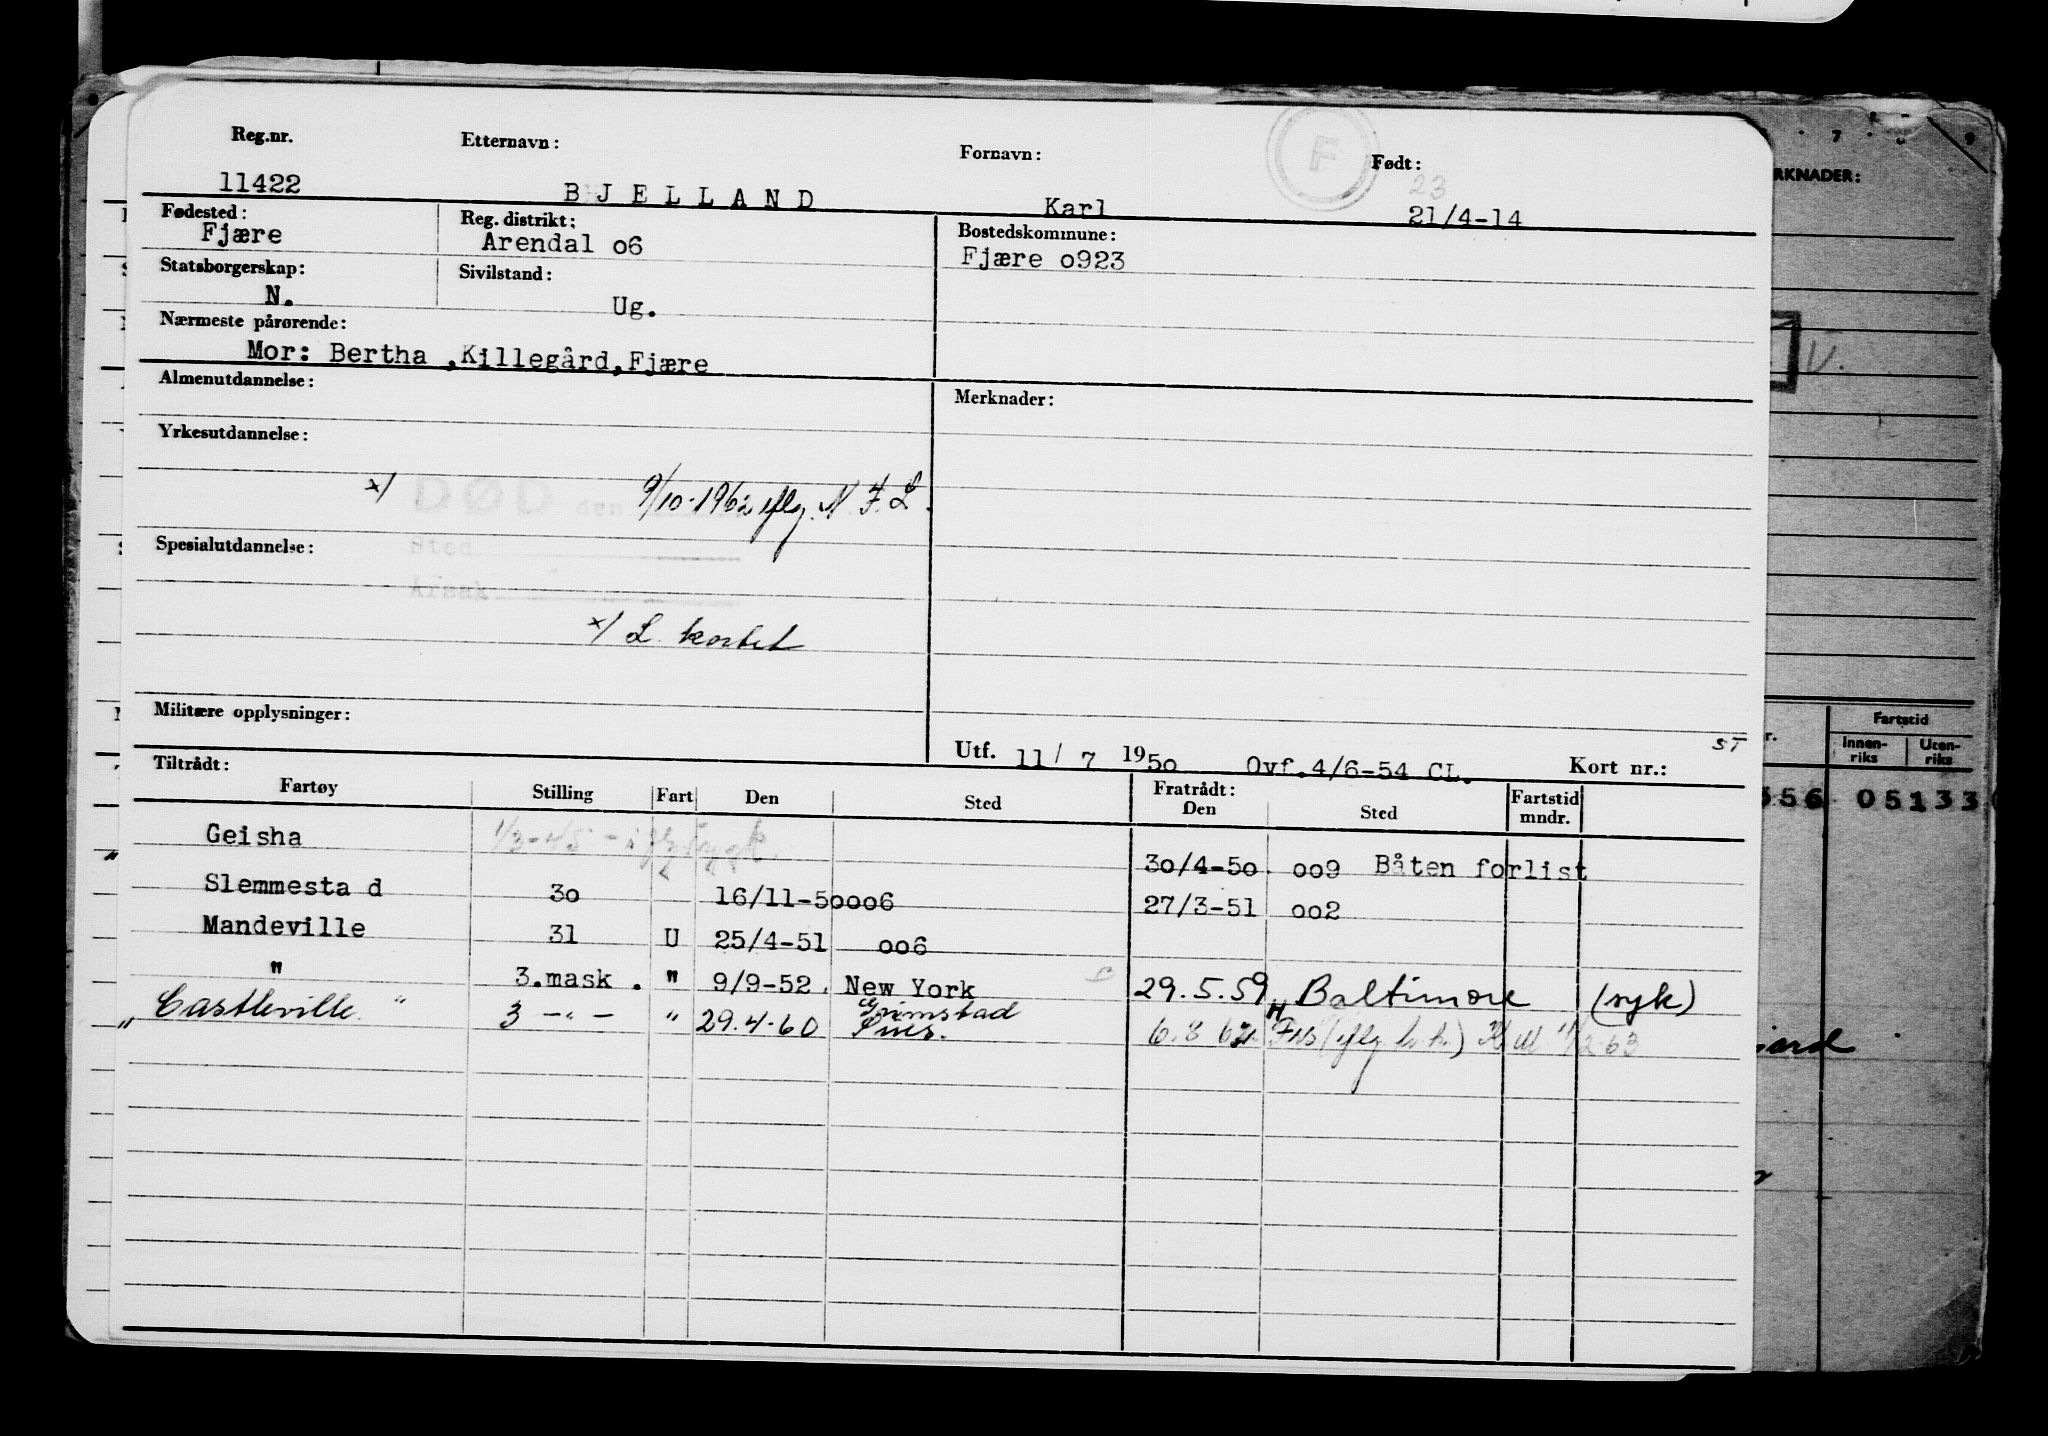 Reg.nr. Etternavn: Fornavn: Født:
F
23
11422 BJELLAND Karl 21/4-14
Fødested: Reg. distrikt: Bostedskommune:
Fjære Arendal o6 Fjære o923
Statsborgerskap: Sivilstand:
N. Ug.
Nærmeste pårørende:
Mor: Bertha ,Killegård,Fjære
Almenutdannelse: Merknader:
Yrkesutdannelse:
x/ DØD den 9/10-1962 iflg. N.F.L.
Spesialutdannelse: Sted
Årsak
x/ L. kortet
Militære opplysninger:
ST
Utf. 11/ 7 1950 Ovf.4/6-54 CL. Kort nr.:
Tiltrådt: Fratrådt:
Fartøy Stilling Fart Den Sted Den Sted Fartstid mndr.
Geisha 1/3-45 - 30/4-50. oo9 Båten forlist
" Slemmesta d 3o 16/11-50oo6 27/3-51 oo2
Mandeville 31 U 25/4-51 oo6
" 3.mask. " 9/9-52. New York 29.5.59 Baltimore (syk)
" Castleville " 3 -"- " 29.4.60 Grimstad 6.8 62 (iflg h.k.) 11/2-63
RKNADER:
7 9
V.
Fartstid
Innen-riks Uten-riks
556 05133